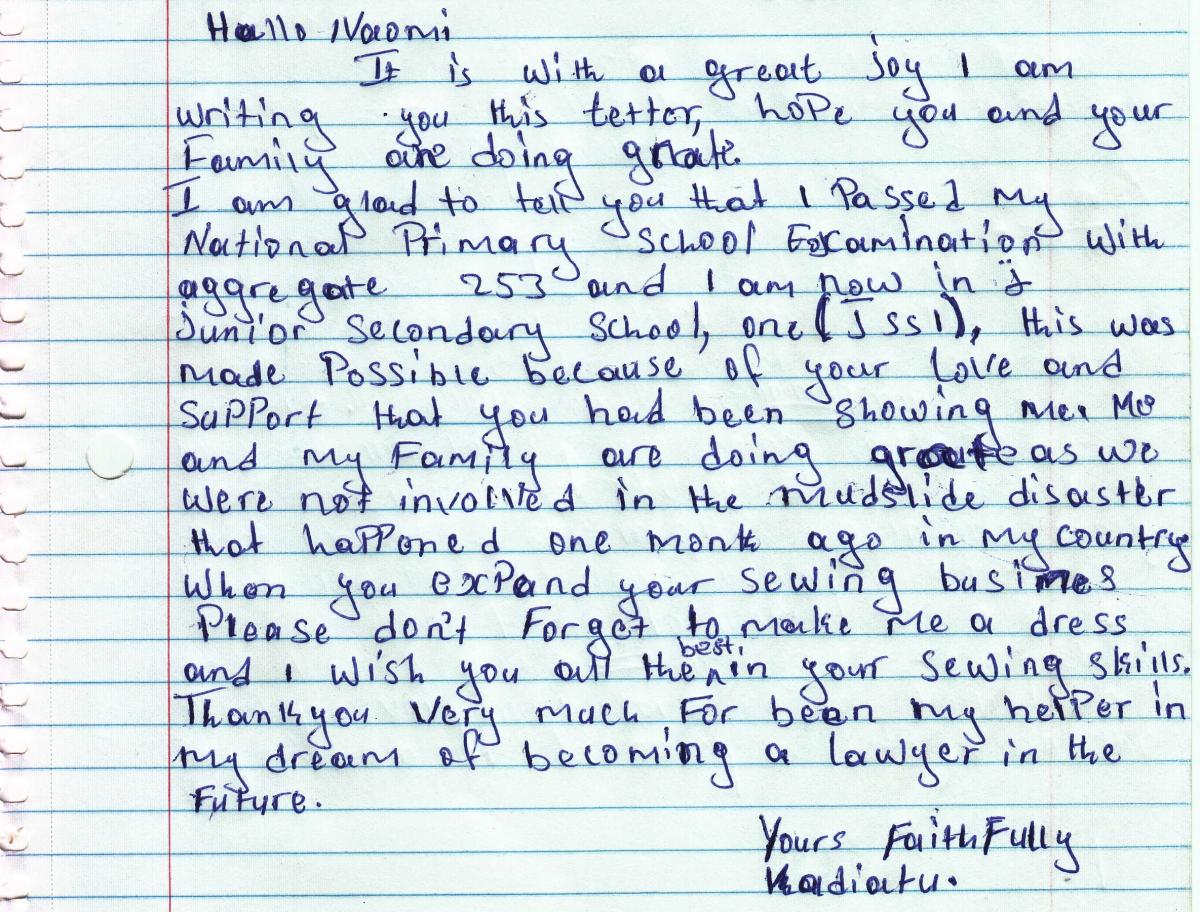 Hallo Naomi
It is with a great joy I am
writing you this letter, hope you and your
Family are doing grate.
I am glad to tell you that I Passed my
National Primary School Examination with
aggregate 253 and I am now in j
junior secondary school, one (JSS1), this was
made Possible because of your love and
suPPort that you had been showing me. Me
and my Family are doing greate as we
were not involved in the mudslide disaster
that haPPened one month ago in my country
when you exPand your sewing busines
Please don't Forget to make me a dress
and I wish you all the best in your sewing skills.
Thank you very much For been my helPer in
my dream of becoming a lawyer in the
Future.
Yours FaithFully
Kadiatu.